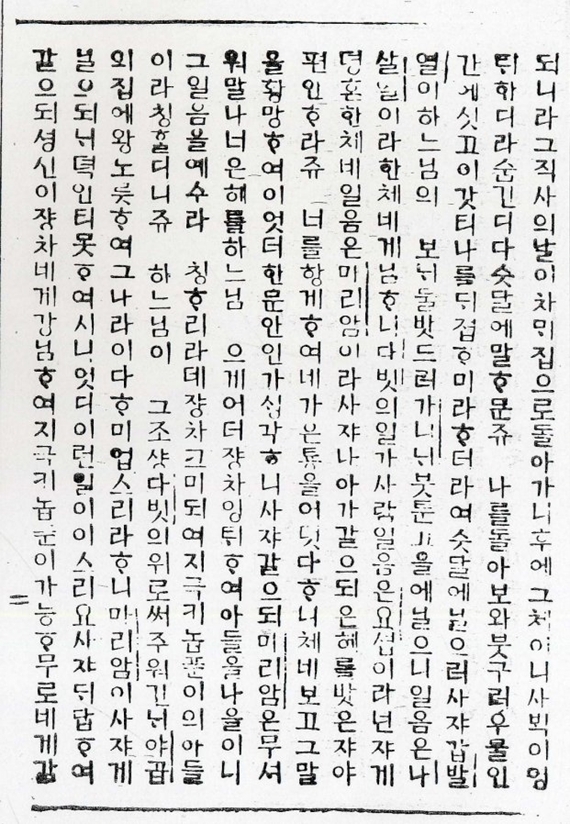 되니라그직사의날이차믹집으로돌아가니후에그쳐이니사벽이잉
틔한디라숨긴디다숫달에말ᄒᆞ문쥬 나를돌아보와붓구러우물인
간에싯고이갓티나를뒤졉ᄒᆞ미라ᄒᆞ더라여숫달에닐으러사쟈갑발
열이하느님의 보뉘물밧드러가니뉘붓튼고을에닐으니일음은나
살닐이라한쳬네게님ᄒᆞ니다빗의일가사람일음은요셥이라년쟈게
뎡혼한쳬네일음은마리암이라사쟈나아가갈으되은혜를밧은쟈야
편안ᄒᆞ라쥬 너를항게ᄒᆞ여네가은툥을어덧다ᄒᆞ니쳬네보고그말
을황망ᄒᆞ여이엇더한문안인가싱각ᄒᆞ니사쟈갈으되마리암은무서
워말나너은혜를하느님 으게어더쟝차잉튀ᄒᆞ여아들을나을이니
그일음을예수라 칭ᄒᆞ리라데쟝차크미되여지극키놉푼이의아들
이라칭ᄒᆞᆯ디니쥬 하느님이 그조샹다빗의위로써주워긴뉘야곱
외집에왕노릇ᄒᆞ여그나라이다ᄒᆞ미업스리라ᄒᆞ니마리암이사쟈게
닐으되뉘뎍인티못ᄒᆞ여시니엇디이런일이이스리요사쟈뒤답ᄒᆞ여
갈으되셩신이쟝차네게강님ᄒᆞ여지극키놉푼이가능ᄒᆞ무로네게감